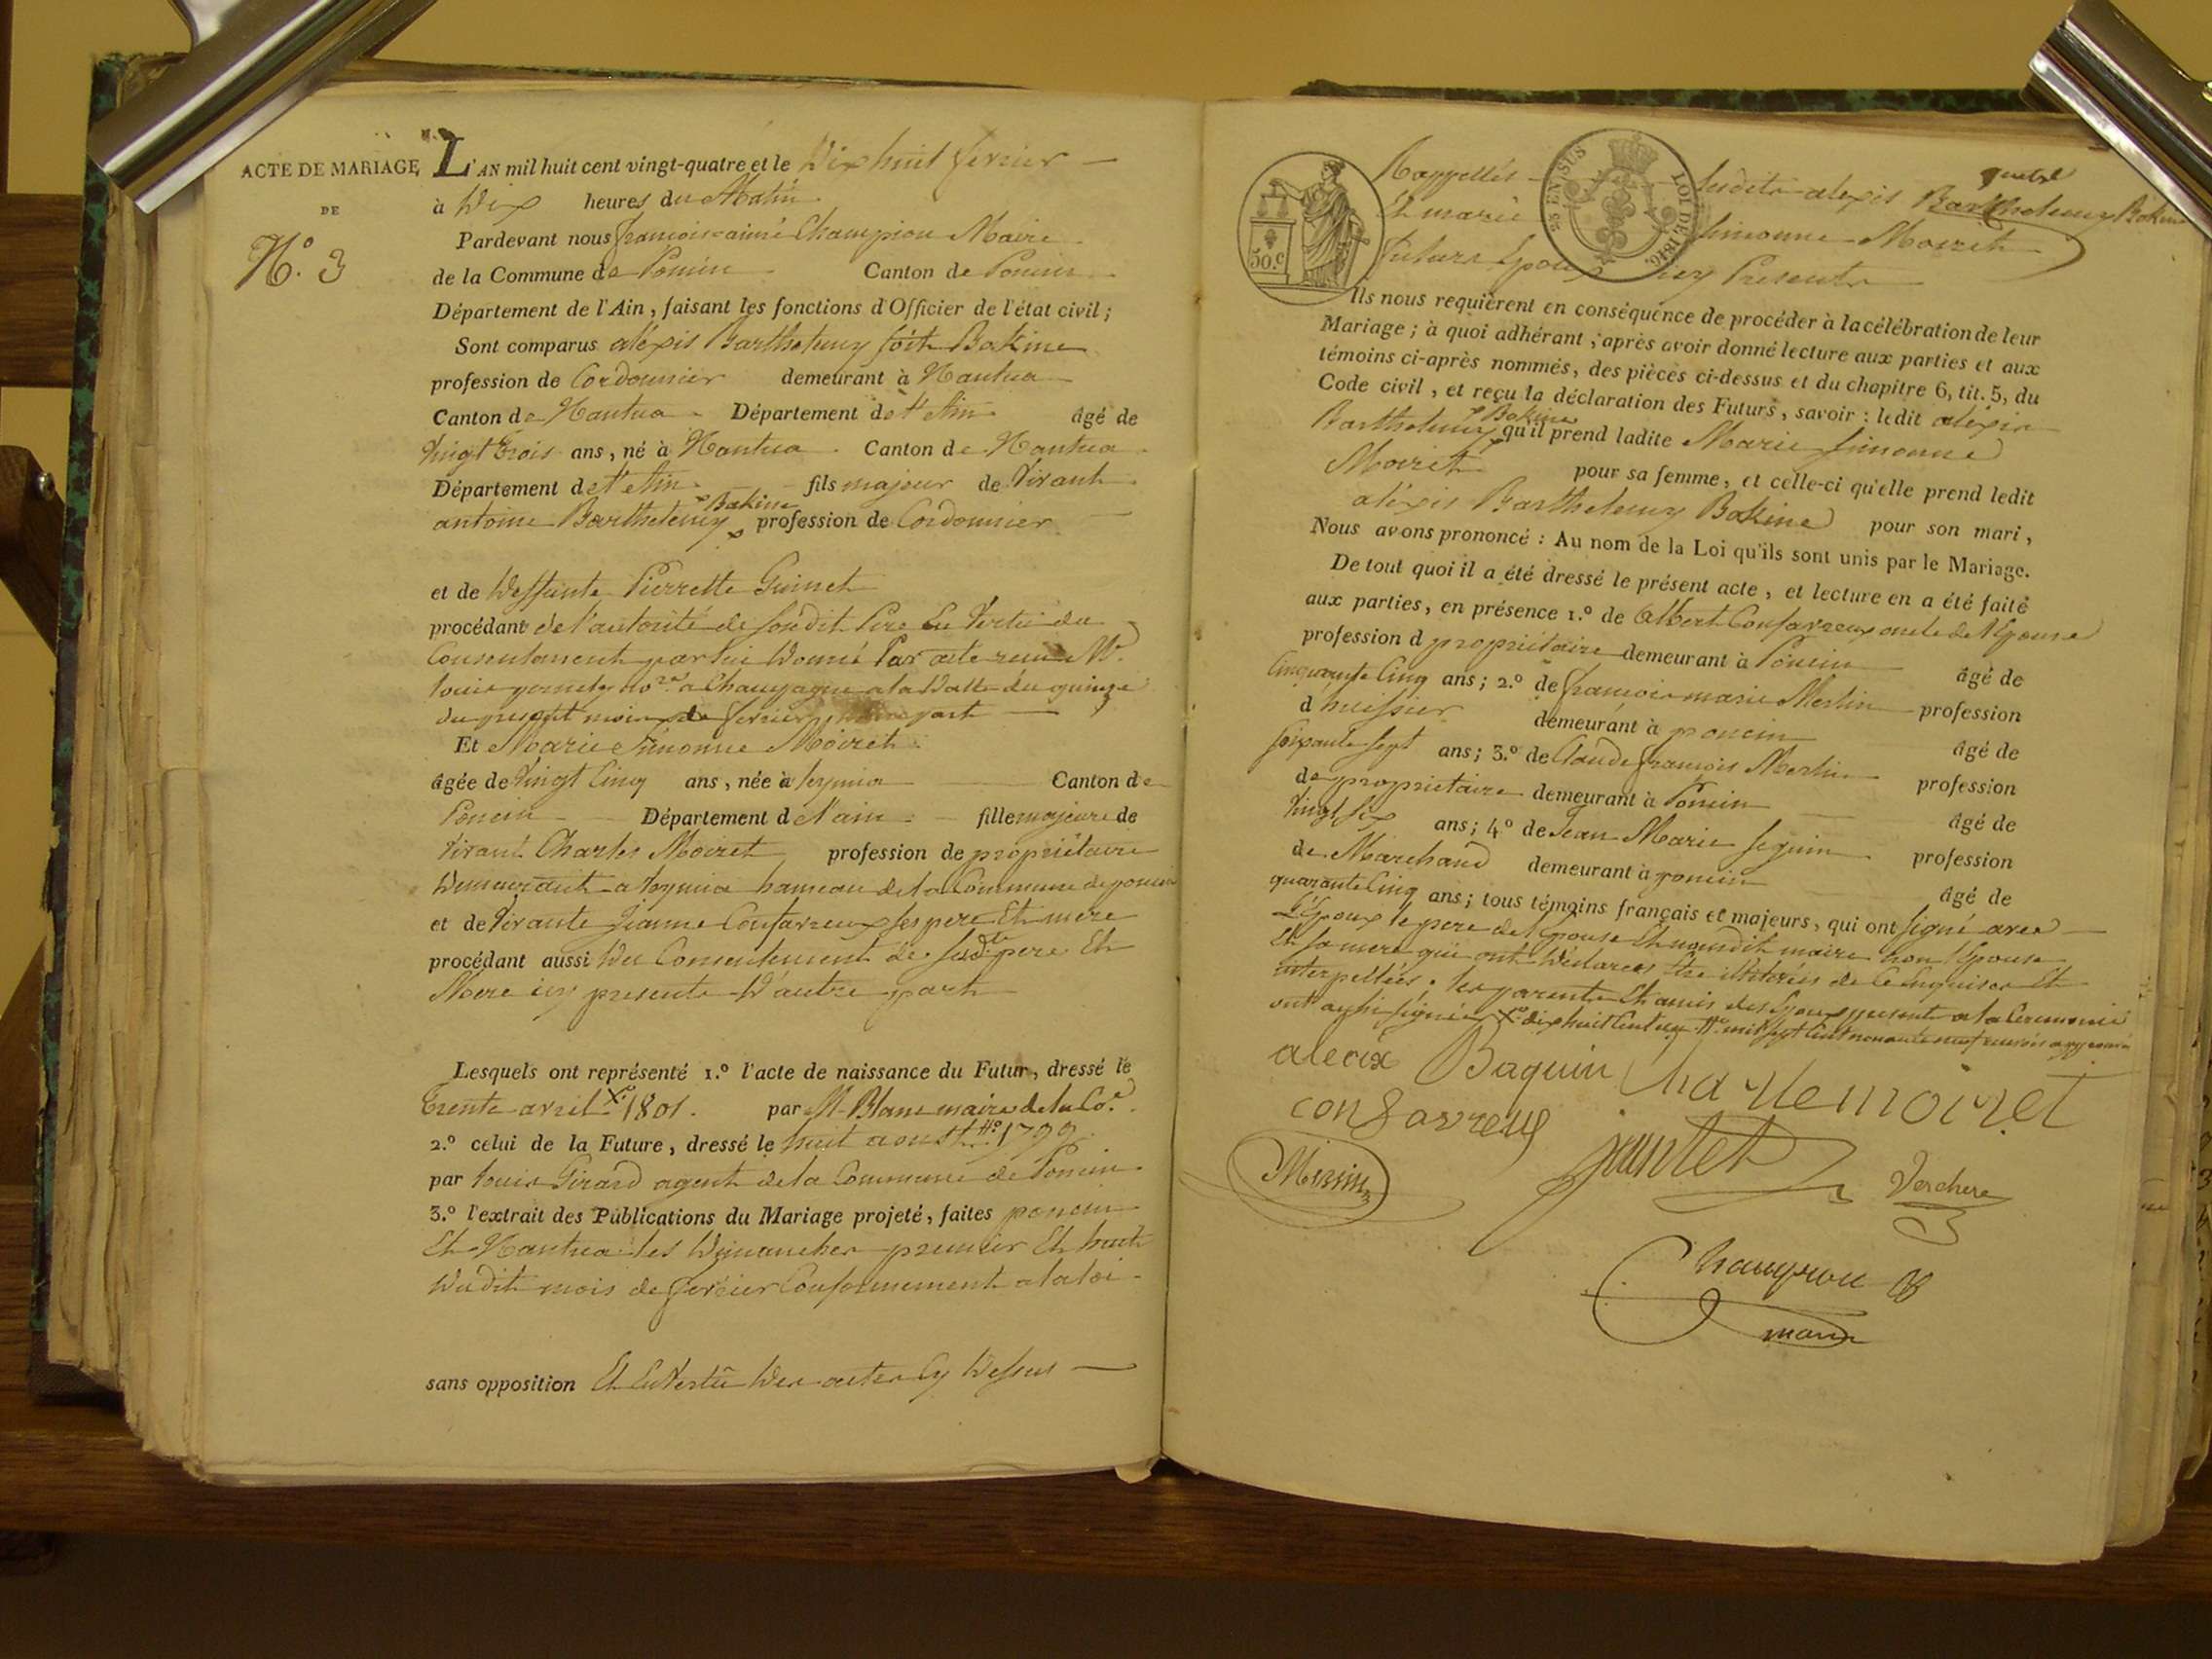 ACTE DE MARIAGE
DE
N.º 3
L'AN mil huit cent vingt-quatre et le Dix huit fevrier
à Dix heures du Matin
Pardevant nous françois aimé Champion Maire
de la Commune de Poncin Canton de Poncin
Département de l'Ain, faisant les fonctions d'Officier de l'état civil;
Sont comparus aléxis Barthelemy Bakine
profession de Cordonnier demeurant à Nantua
Canton de Nantua Département de l'Ain âgé de
Vingt trois ans, né à Nantua Canton de Nantua
Département de l'Ain fils majeur de Vivant
antoine Barthelemy Bakine profession de Cordonnier
et de Deffunte Pierrette Guinet
procédant de l'autorité de Sondit Pere En Vertu du
Consentement par lui Donné Par acte recu Mr.
Louis not.re a Champagne a la Datte du quinze
du present mois de fevrier part
Et Marie Simonne Moiret
âgée de Vingt Cinq ans, née à leymia Canton de
Poncin Département de l'ain fille majeure de
Vivant Charles Moiret profession de propriétaire
Demeurant a leymia hameau de la Commune de poncin
et de Vivante Jeanne Confavreux ses pere Et mere
procédant aussi Du Consentement de Sesdits pere Et
Mere icy presents D'autre part
Lesquels ont représenté 1.º l'acte de naissance du Futur, dressé le
trente avril X.º 1801. par M. Blanc maire de la Co.e
2.º celui de la Future, dressé le huit aoust #.º 1799
par Louis Girard agent de la Commune de Poncin
3.º l'extrait des Publications du Mariage projeté, faites poncin
Et Nantua les Dimanches premier Et huit
Dudit mois de fevrier Conformement a la loi
sans opposition Et En Vertu Des actes Cy Dessus
Rappellés Lesdits alexis Barthelemy Bakine
Et marie Simonne Moiret
futurs Epoux icy Presents
50.c
25 EN SUS
LOI DE 1816.
Ils nous requièrent en conséquence de procéder à la célébration de leur
Mariage; à quoi adhérant, après avoir donné lecture aux parties et aux
témoins ci-après nommés, des pièces ci-dessus et du chapitre 6, tit. 5, du
Code civil, et reçu la déclaration des Futurs, savoir: ledit aléxis
Barthelemy Bakine qu'il prend ladite Marie Simonne
Moiret pour sa femme, et celle-ci qu'elle prend ledit
aléxis Barthelemy Bakine pour son mari,
Nous avons prononcé: Au nom de la Loi qu'ils sont unis par le Mariage.
De tout quoi il a été dressé le présent acte, et lecture en a été faite
aux parties, en présence 1.º de Albert Confavreux oncle de l'Epouse
profession d propriétaire demeurant à Poncin âgé de
Cinquante Cinq ans; 2.º de françois marie Merlin profession
d huissier demeurant à poncin âgé de
soixante sept ans; 3.º de Claude françois Merlin profession
de propriétaire demeurant à Poncin âgé de
Vingt six ans; 4.º de Jean Marie Seguin profession
de Marchand demeurant à poncin âgé de
quarante Cinq ans; tous témoins français et majeurs, qui ont signé avec
L'Epoux le pere de l'Epouse Et nousdit maire non l'Epouse
Et sa mere qui ont Déclarées Etre illitérées de Ce Enquises Et
interpellées. les parents Et amis des Epoux presents a la Ceremonie
ont aussi signés X.º dix huit Cent un #.º mil sept Cent nonante neuf
alecix Baquin Charle moiret
confavreux
jantet
Verchere
Champion
maire